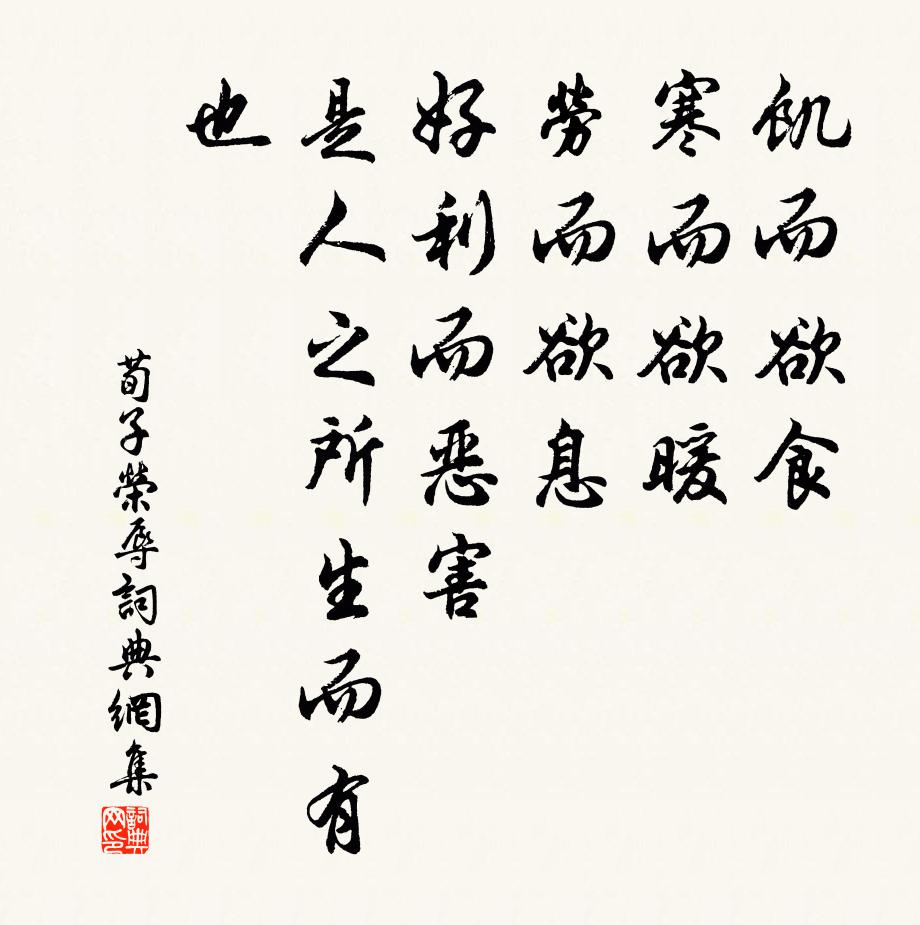 飢而欲食
寒而欲暖
勞而欲息
好利而惡害
是人之所生而有
也
荀子榮辱詞典網集
詞典网印